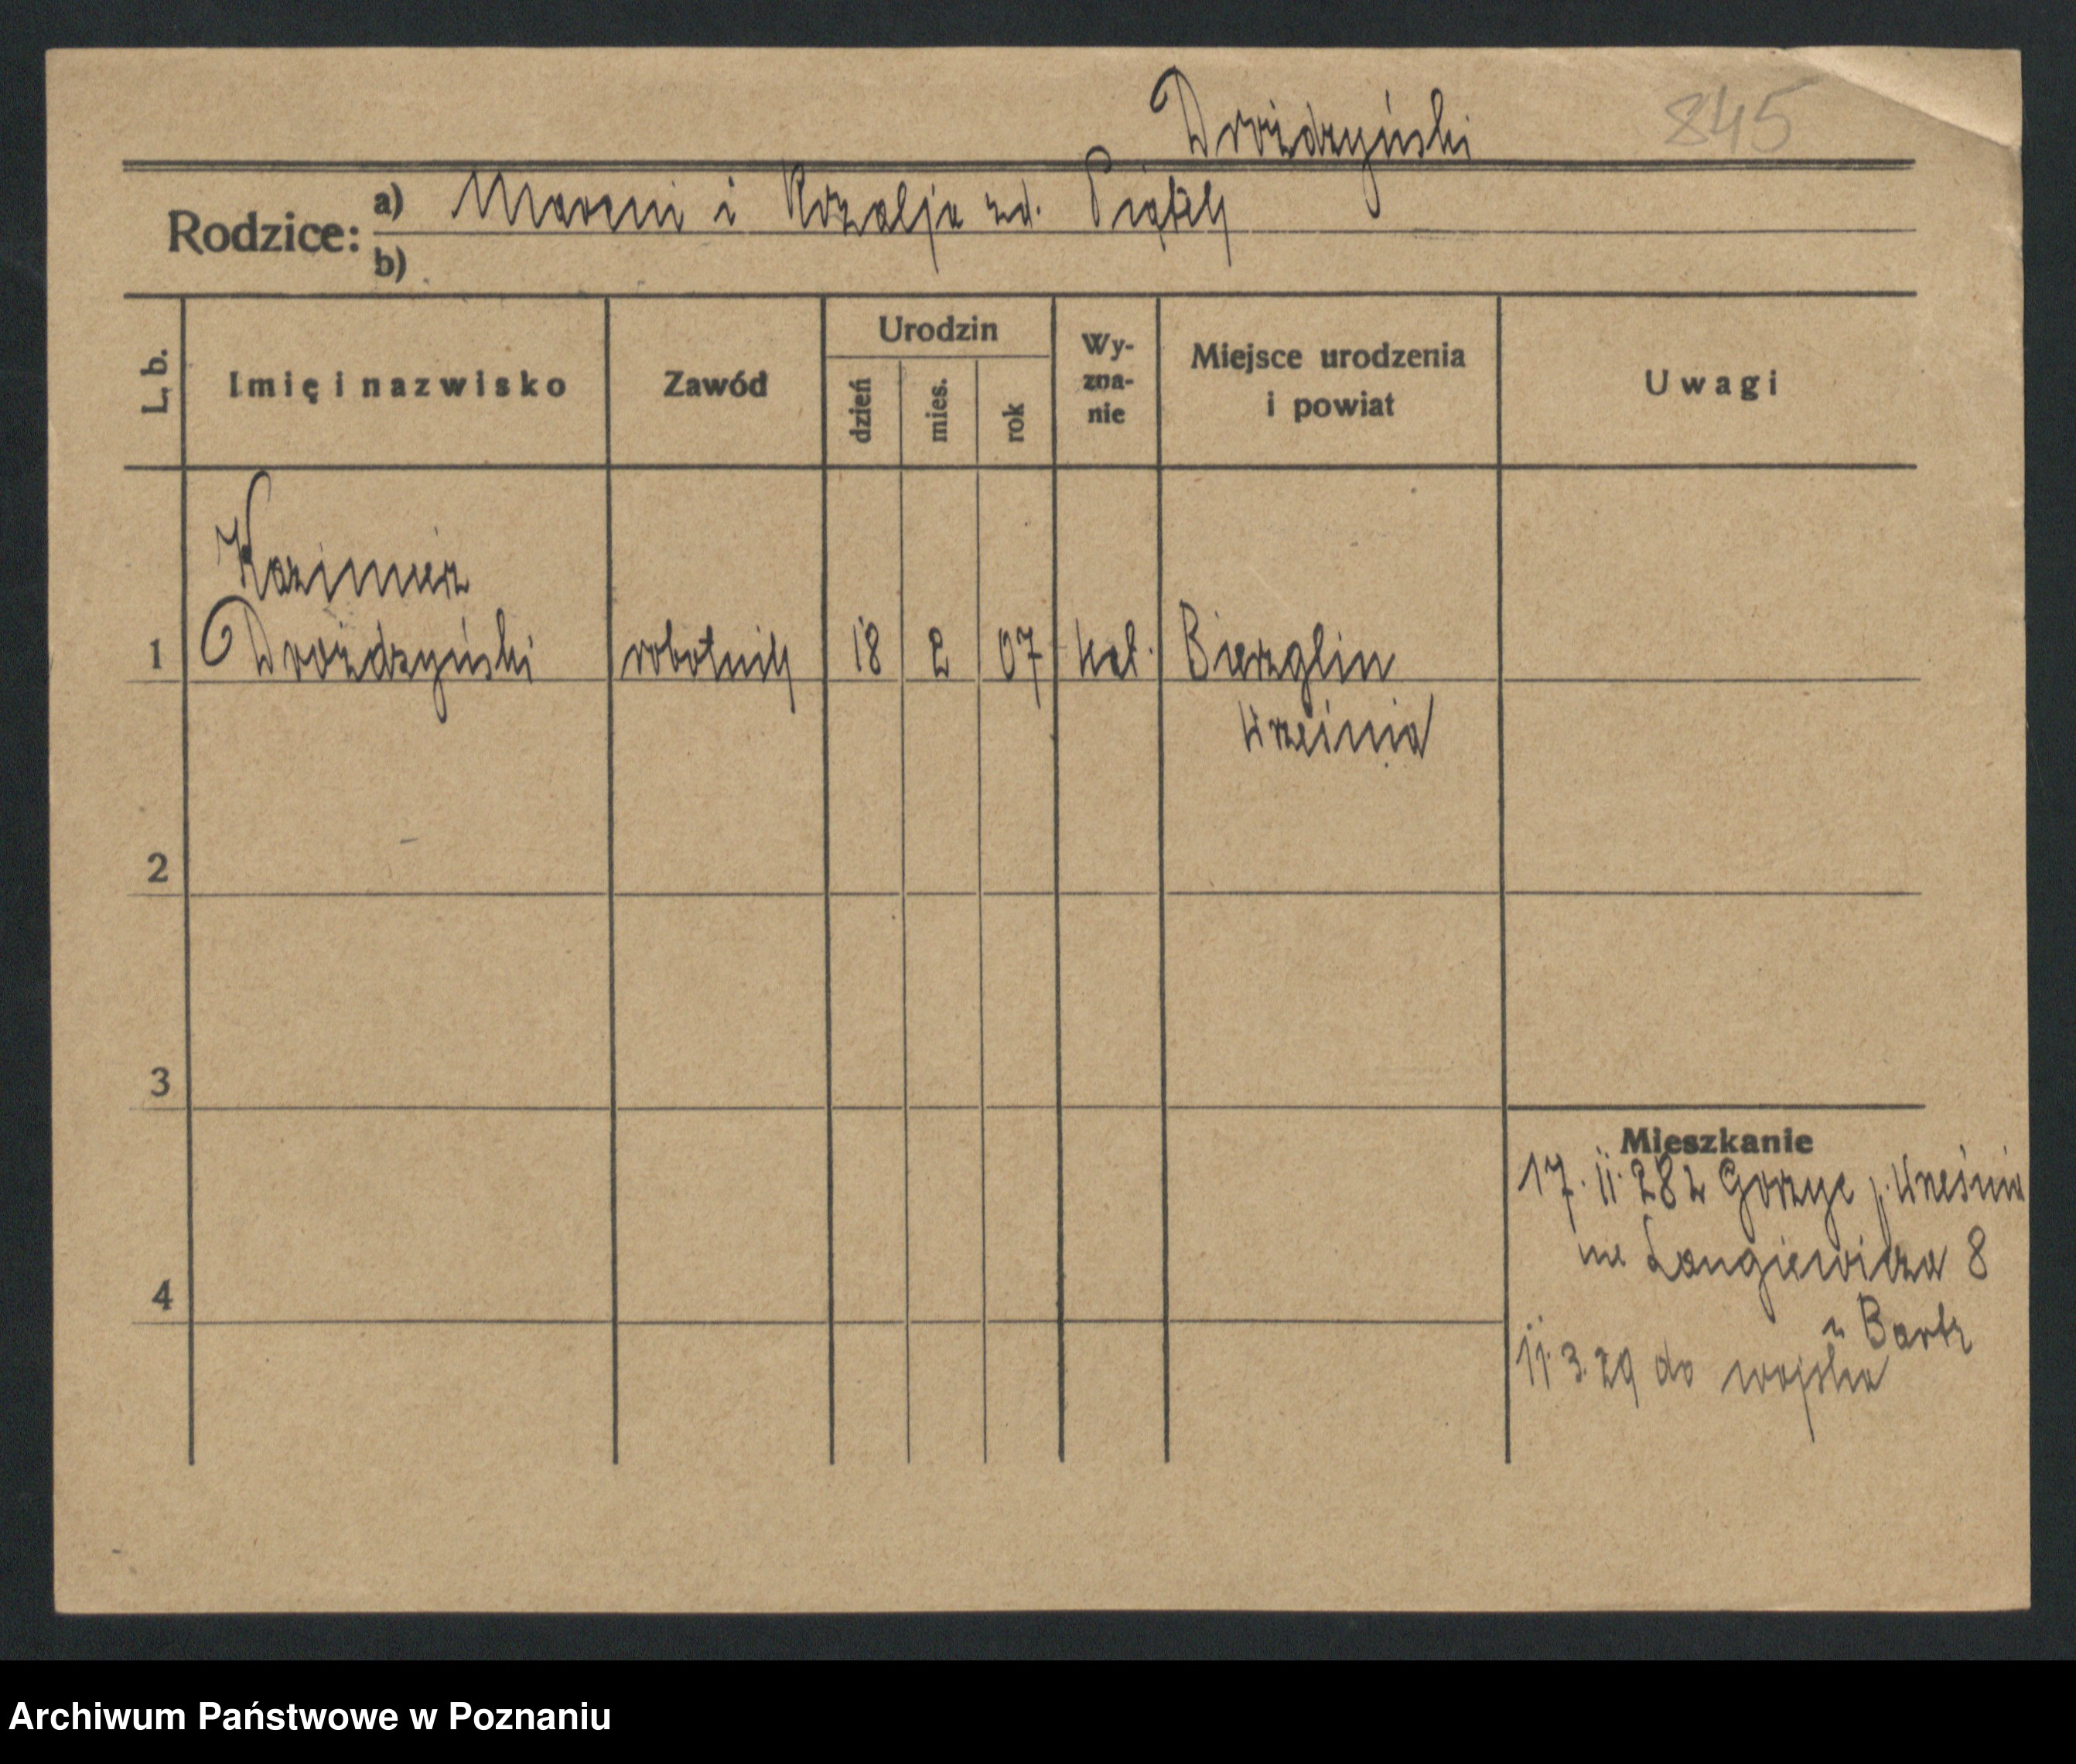 Drożdżyński 845
Rodzice: a) Marcin i Rozalja zd. Piątek
b)
L. b. Imię i nazwisko Zawód Urodzin dzień mies. rok Wy-zna-nie Miejsce urodzenia i powiat Uwagi
Kazimierz
1 Drożdżyński robotnik 18 2 07 kat. Bierzglin
Września
2
3
Mieszkanie
17.11.28 z Gorzyc p. Września
na Langiewicza 8
4
u Bartz
11.3.29 do wojska
Archiwum Państwowe w Poznaniu